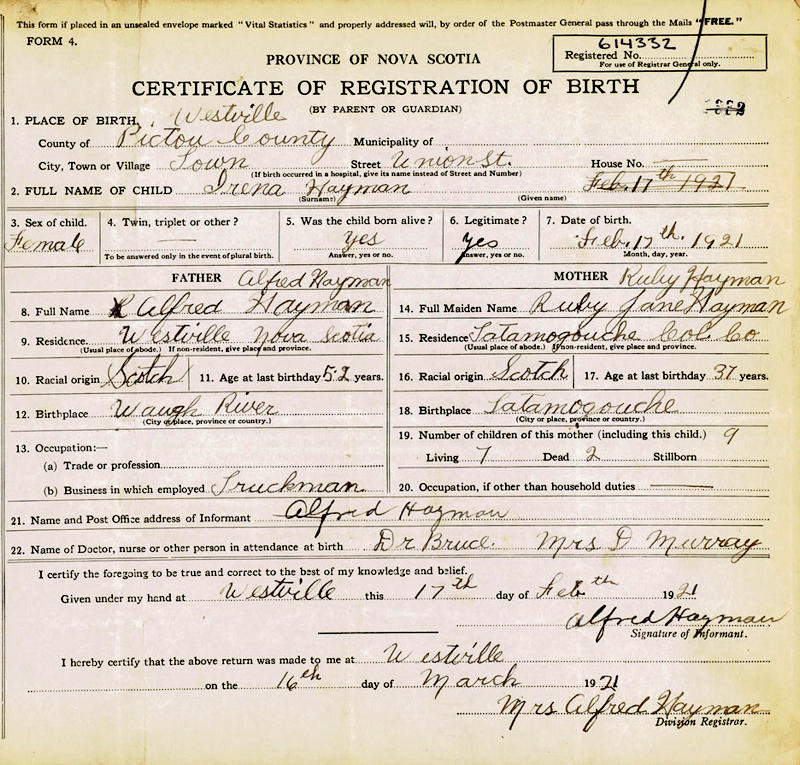 This form if placed in an unsealed envelope marked "Vital Statistics" and properly addressed will, by order of the Postmaster General pass through the Mails "FREE."
FORM 4.
614332
Registered No.
For use of Registrar General only.
PROVINCE OF NOVA SCOTIA
CERTIFICATE OF REGISTRATION OF BIRTH
(BY PARENT OR GUARDIAN)
1. PLACE OF BIRTH, Westville
County of Pictou County Municipality of
City, Town or Village Town Street Union St. House No. —
(If birth occurred in a hospital, give its name instead of Street and Number)
2. FULL NAME OF CHILD Irena Hayman Feb. 17th 1921
(Surname) (Given name)
3. Sex of child. 4. Twin, triplet or other? 5. Was the child born alive? 6. Legitimate? 7. Date of birth.
Female — yes yes Feb. 17th. 1921
To be answered only in the event of plural birth. Answer, yes or no. Answer, yes or no. Month, day, year.
FATHER Alfred Hayman MOTHER Ruby Hayman
8. Full Name Alfred Hayman 14. Full Maiden Name Ruby Jane Hayman
9. Residence. Westville Nova Scotia 15. Residence Tatamogouche Col. Co
(Usual place of abode.) If non-resident, give place and province. (Usual place of abode.) If non-resident, give place and province.
10. Racial origin Scotch 11. Age at last birthday 52 years. 16. Racial origin Scotch 17. Age at last birthday 37 years.
12. Birthplace Waugh River 18. Birthplace Tatamogouche
(City or place, province or country.) (City or place, province or country.)
13. Occupation:— 19. Number of children of this mother (including this child.) 9
(a) Trade or profession Living 7 Dead 2 Stillborn
(b) Business in which employed Truckman 20. Occupation, if other than household duties —
21. Name and Post Office address of Informant Alfred Hayman
22. Name of Doctor, nurse or other person in attendance at birth Dr Bruce Mrs D Murray
I certify the foregoing to be true and correct to the best of my knowledge and belief.
Given under my hand at Westville this 17th day of Feb th 1921
Alfred Hayman
Signature of Informant.
I hereby certify that the above return was made to me at Westville
on the 16th day of March 1921
Mrs Alfred Hayman
Division Registrar.